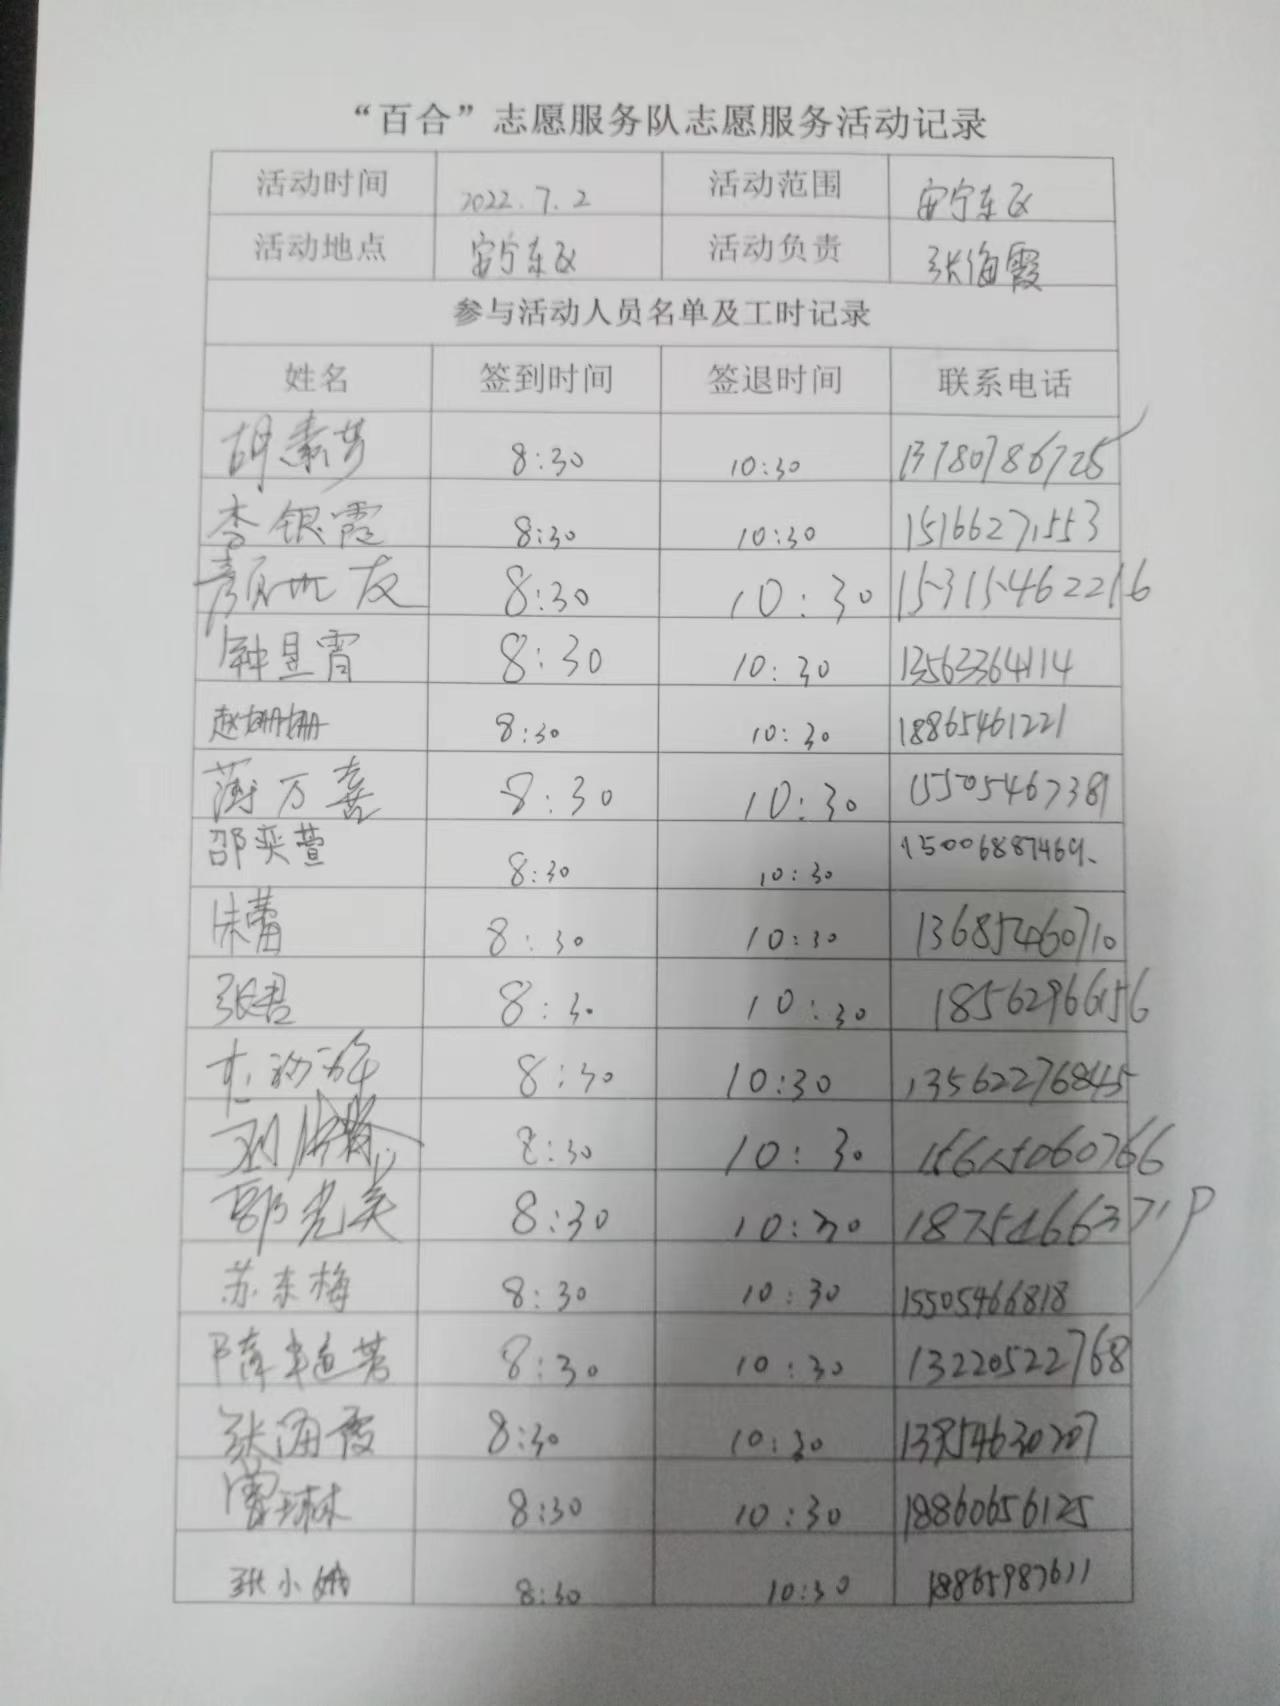 “百合”志愿服务队志愿服务活动记录
活动时间 2022.7.2 活动范围 安宁东区
活动地点 安宁东区 活动负责 张海霞
参与活动人员名单及工时记录
姓名 签到时间 签退时间 联系电话
胡素芳 8:30 10:30 13780786725
李银霞 8:30 10:30 15166271553
8:30 10:30 15315462216
钟昱霄 8:30 10:30 13563364114
赵姗姗 8:30 10:30 18865461221
薄万喜 8:30 10:30 15505467381
邵奕萱 8:30 10:30 15006887469
朱蕾 8:30 10:30 13685460710
张君 8:30 10:30 18562966156
8:30 10:30 13562276845
8:30 10:30
郭光美 8:30 10:30
苏东梅 8:30 10:30 15505466818
8:30 10:30 13220522768
张海霞 8:30 10:30 13854630207
曹琳 8:30 10:30 18860656125
张小娥 8:30 10:30 18865987611